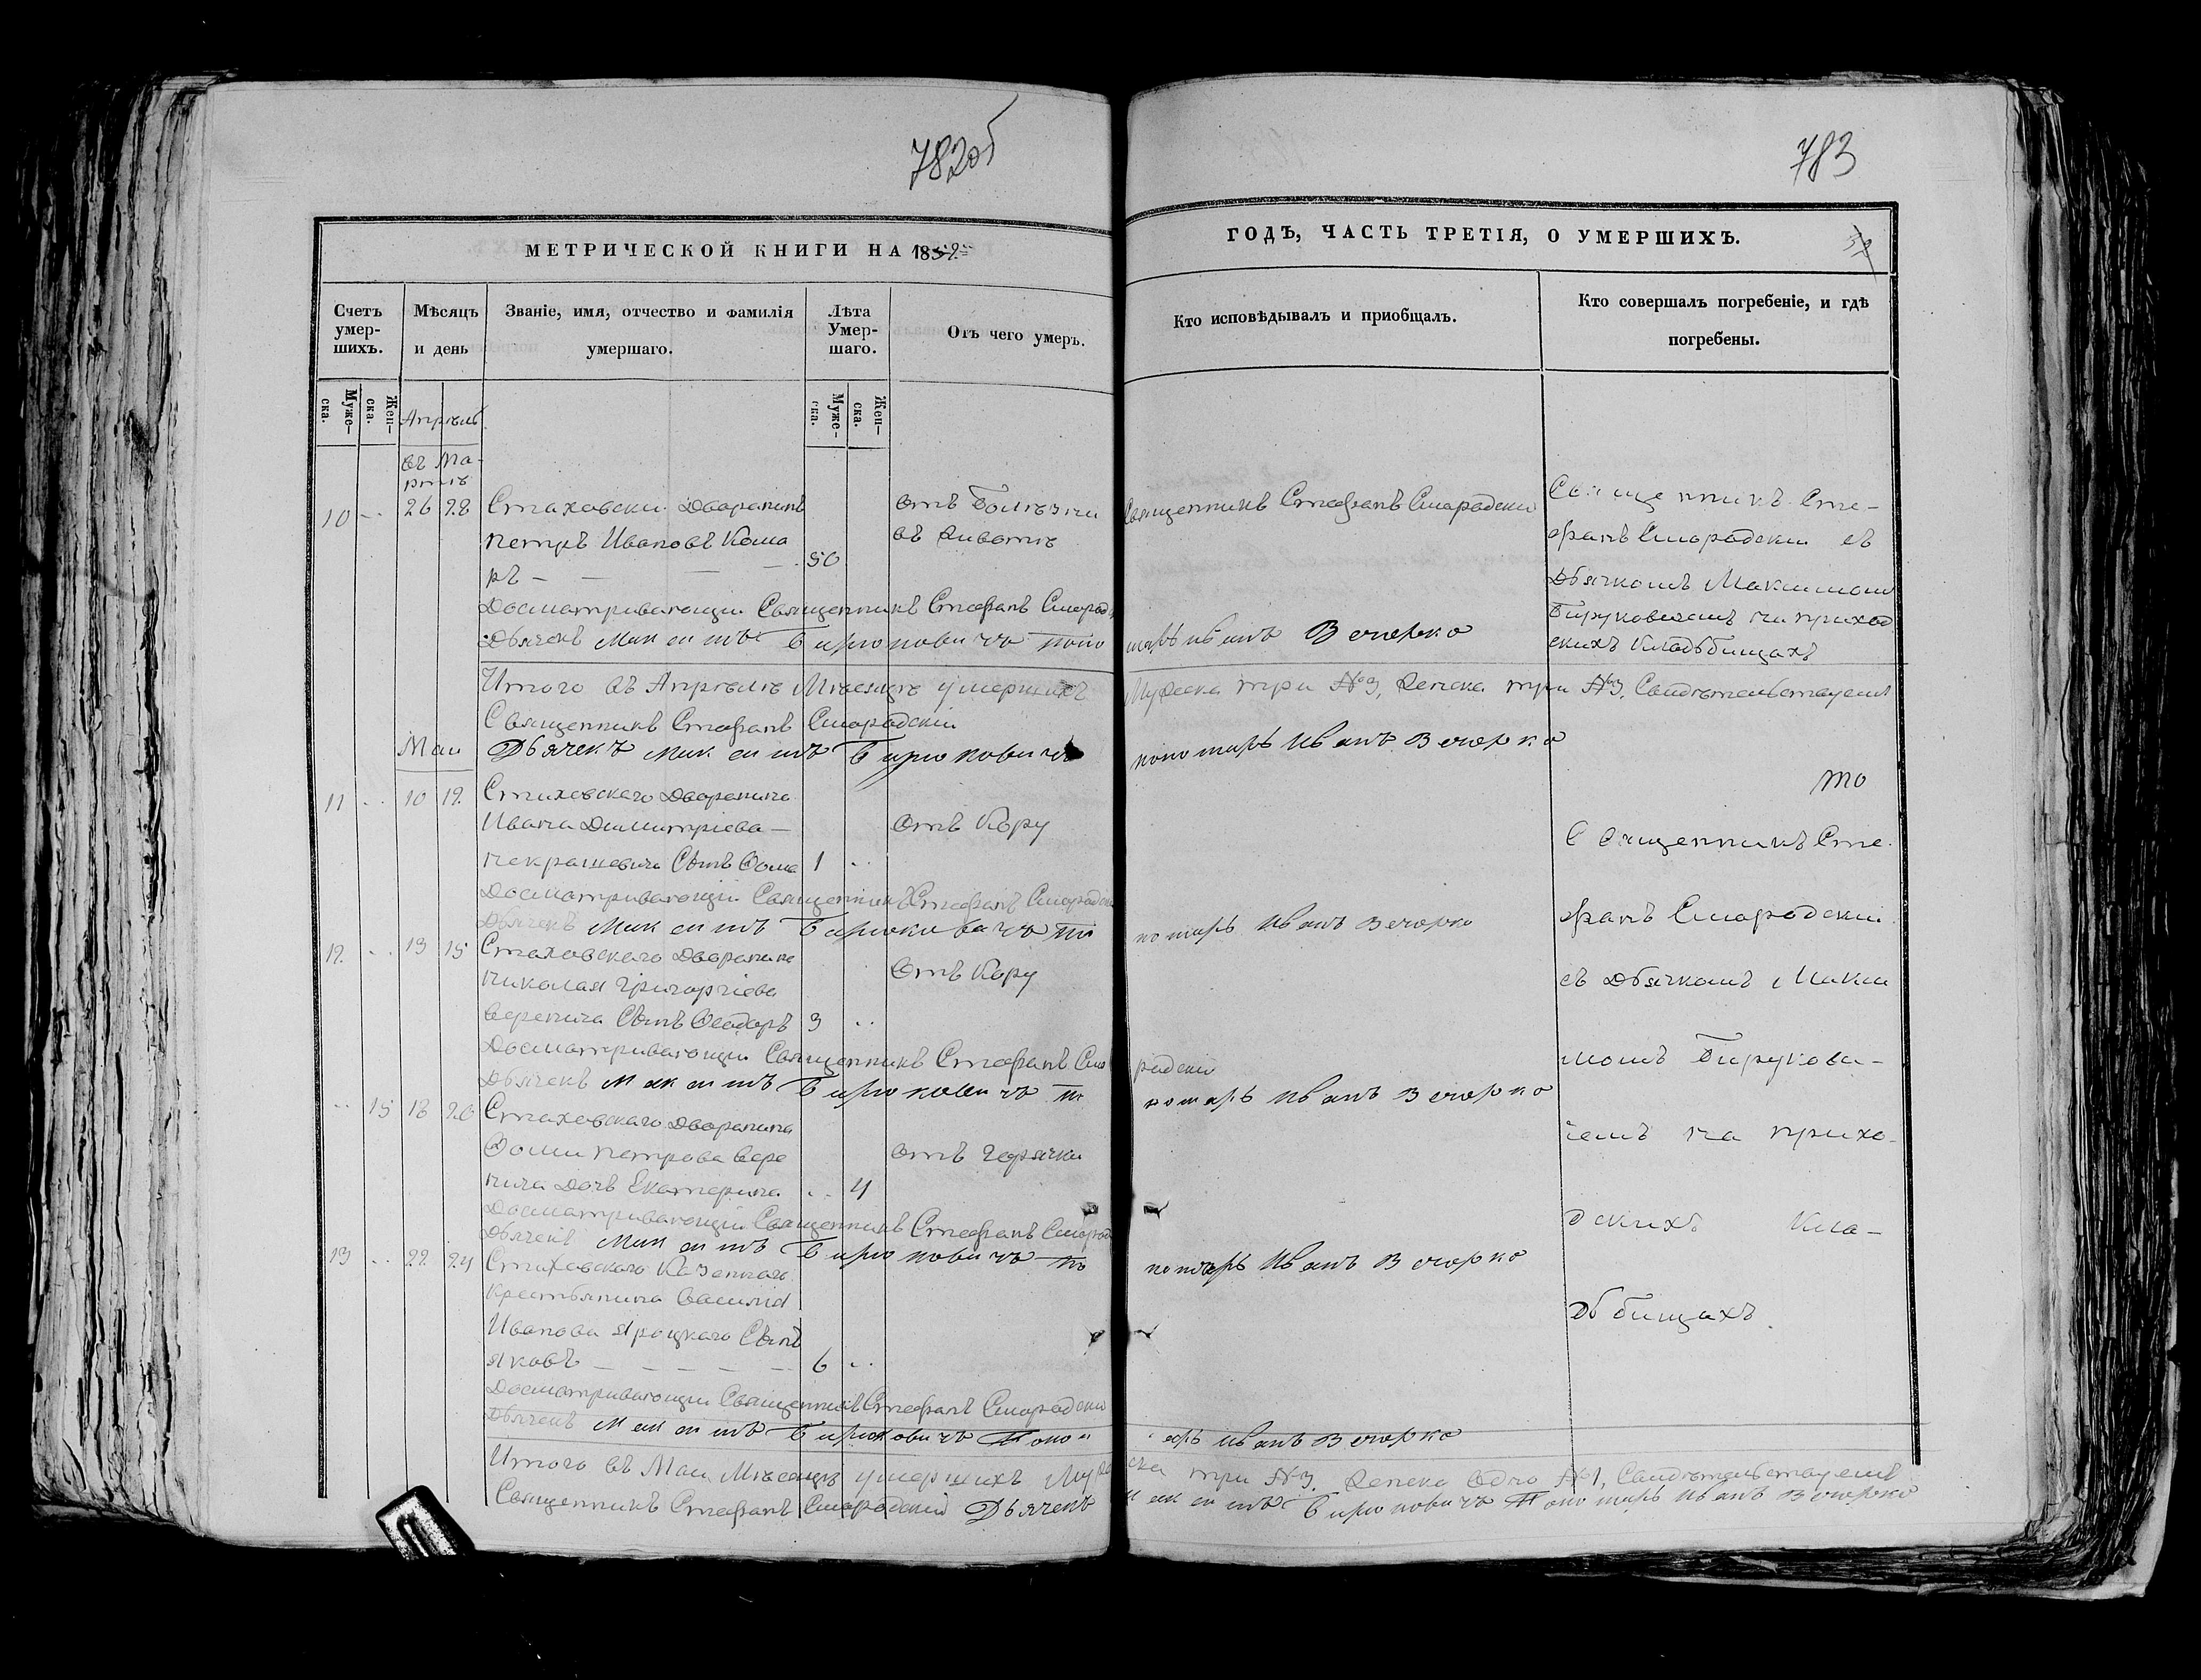 782об
783
МЕТРИЧЕСКОЙ КНИГИ НА 1839.
ГОДѢ, ЧАСТЬ ТРЕТІЯ, О УМЕРШИХЪ.
Счетъ умер-шихъ.
Мѣсяцъ и день
Званіе, имя, отчество и фамилія умершаго.
Лѣта Умер-шаго.
Отъ чего умеръ.
Кто исповѣдывалъ и приобщалъ.
Кто совершалъ погребеніе, и гдѣ погребены.
Муже-ска.
Жен-ска.
Апрѣль
Муже-ска.
Жен-ска.
въ Ма-
ртѣ
10 26 28 Стаховски Дворанинъ
Петръ Ивановъ Кома
ръ 50
отъ Болѣзни
въ Животѣ
Священникъ Стефанъ Сморадски
Священникъ Сте-
фанъ Сморадски съ
Дьячкомъ Максимом
Бируковичемъ на приход
скихъ Кладьбищахъ
Досматривающи Священникъ Стефанъ Сморад
Дьячекъ Максимъ Бирюковичъ поно
марь Иванъ Вечорко
Итого въ Апрѣлѣ Мѣсяцѣ умершихъ Мужеска три №3, Женска три №3, Свидѣтельствуемъ
Священникъ Стефанъ Сморадскій
Дьячекъ Максимъ Бирюковичъ пономарь Иванъ Вечорко
Маи
11 10 12 Стаховскаго Дворанина
Ивана Димитріева
Некрашевича Сынъ Фома 1
Отъ Кору
То
Священникъ Сте
фанъ Сморадскій
съ Дьячкомъ Макси
момъ Бирукови-
чемъ на прихо-
дскихъ Кла-
дьбищахъ
Досматривающій Священникъ Стефанъ Сморадски
Дьячекъ Максимъ Бирюковичъ по
номарь Иванъ Вечорко
12 13 15 Стаховскаго Дворанина
Николая Григоріева
Веренича Сынъ Феодоръ 3
Отъ Кору
Досматривающи Священникъ Стефанъ Смо
радскій
Дьячекъ Максимъ Бирюковичъ по
номарь Иванъ Вечорко
15 18 20 Стаховскаго Дворанина
Фомы Петрова Вере
нича Дочь Екатерина 4
Отъ Горячки
Досматривающій Священникъ Стефанъ Сморад
Дьячекъ Максимъ Бирюковичъ по
номарь Иванъ Вечорко
13 22 24 Стаховскаго Казеннаго
Крестьянина Василия
Иванова Яроцкаго Сынъ
Яковъ 6
Досматривающи Священникъ Стефанъ Сморадски
Дьячекъ Максимъ Бирюковичъ Поно
марь Иванъ Вечорко
Итого въ Маи Мѣсяцѣ умершихъ Мужеска три №3, Женска одно №1, Свидѣтельствуемъ
Священникъ Стефанъ Сморадскій Дьячекъ Максимъ Бирюковичъ Пономарь Иванъ Вечорко